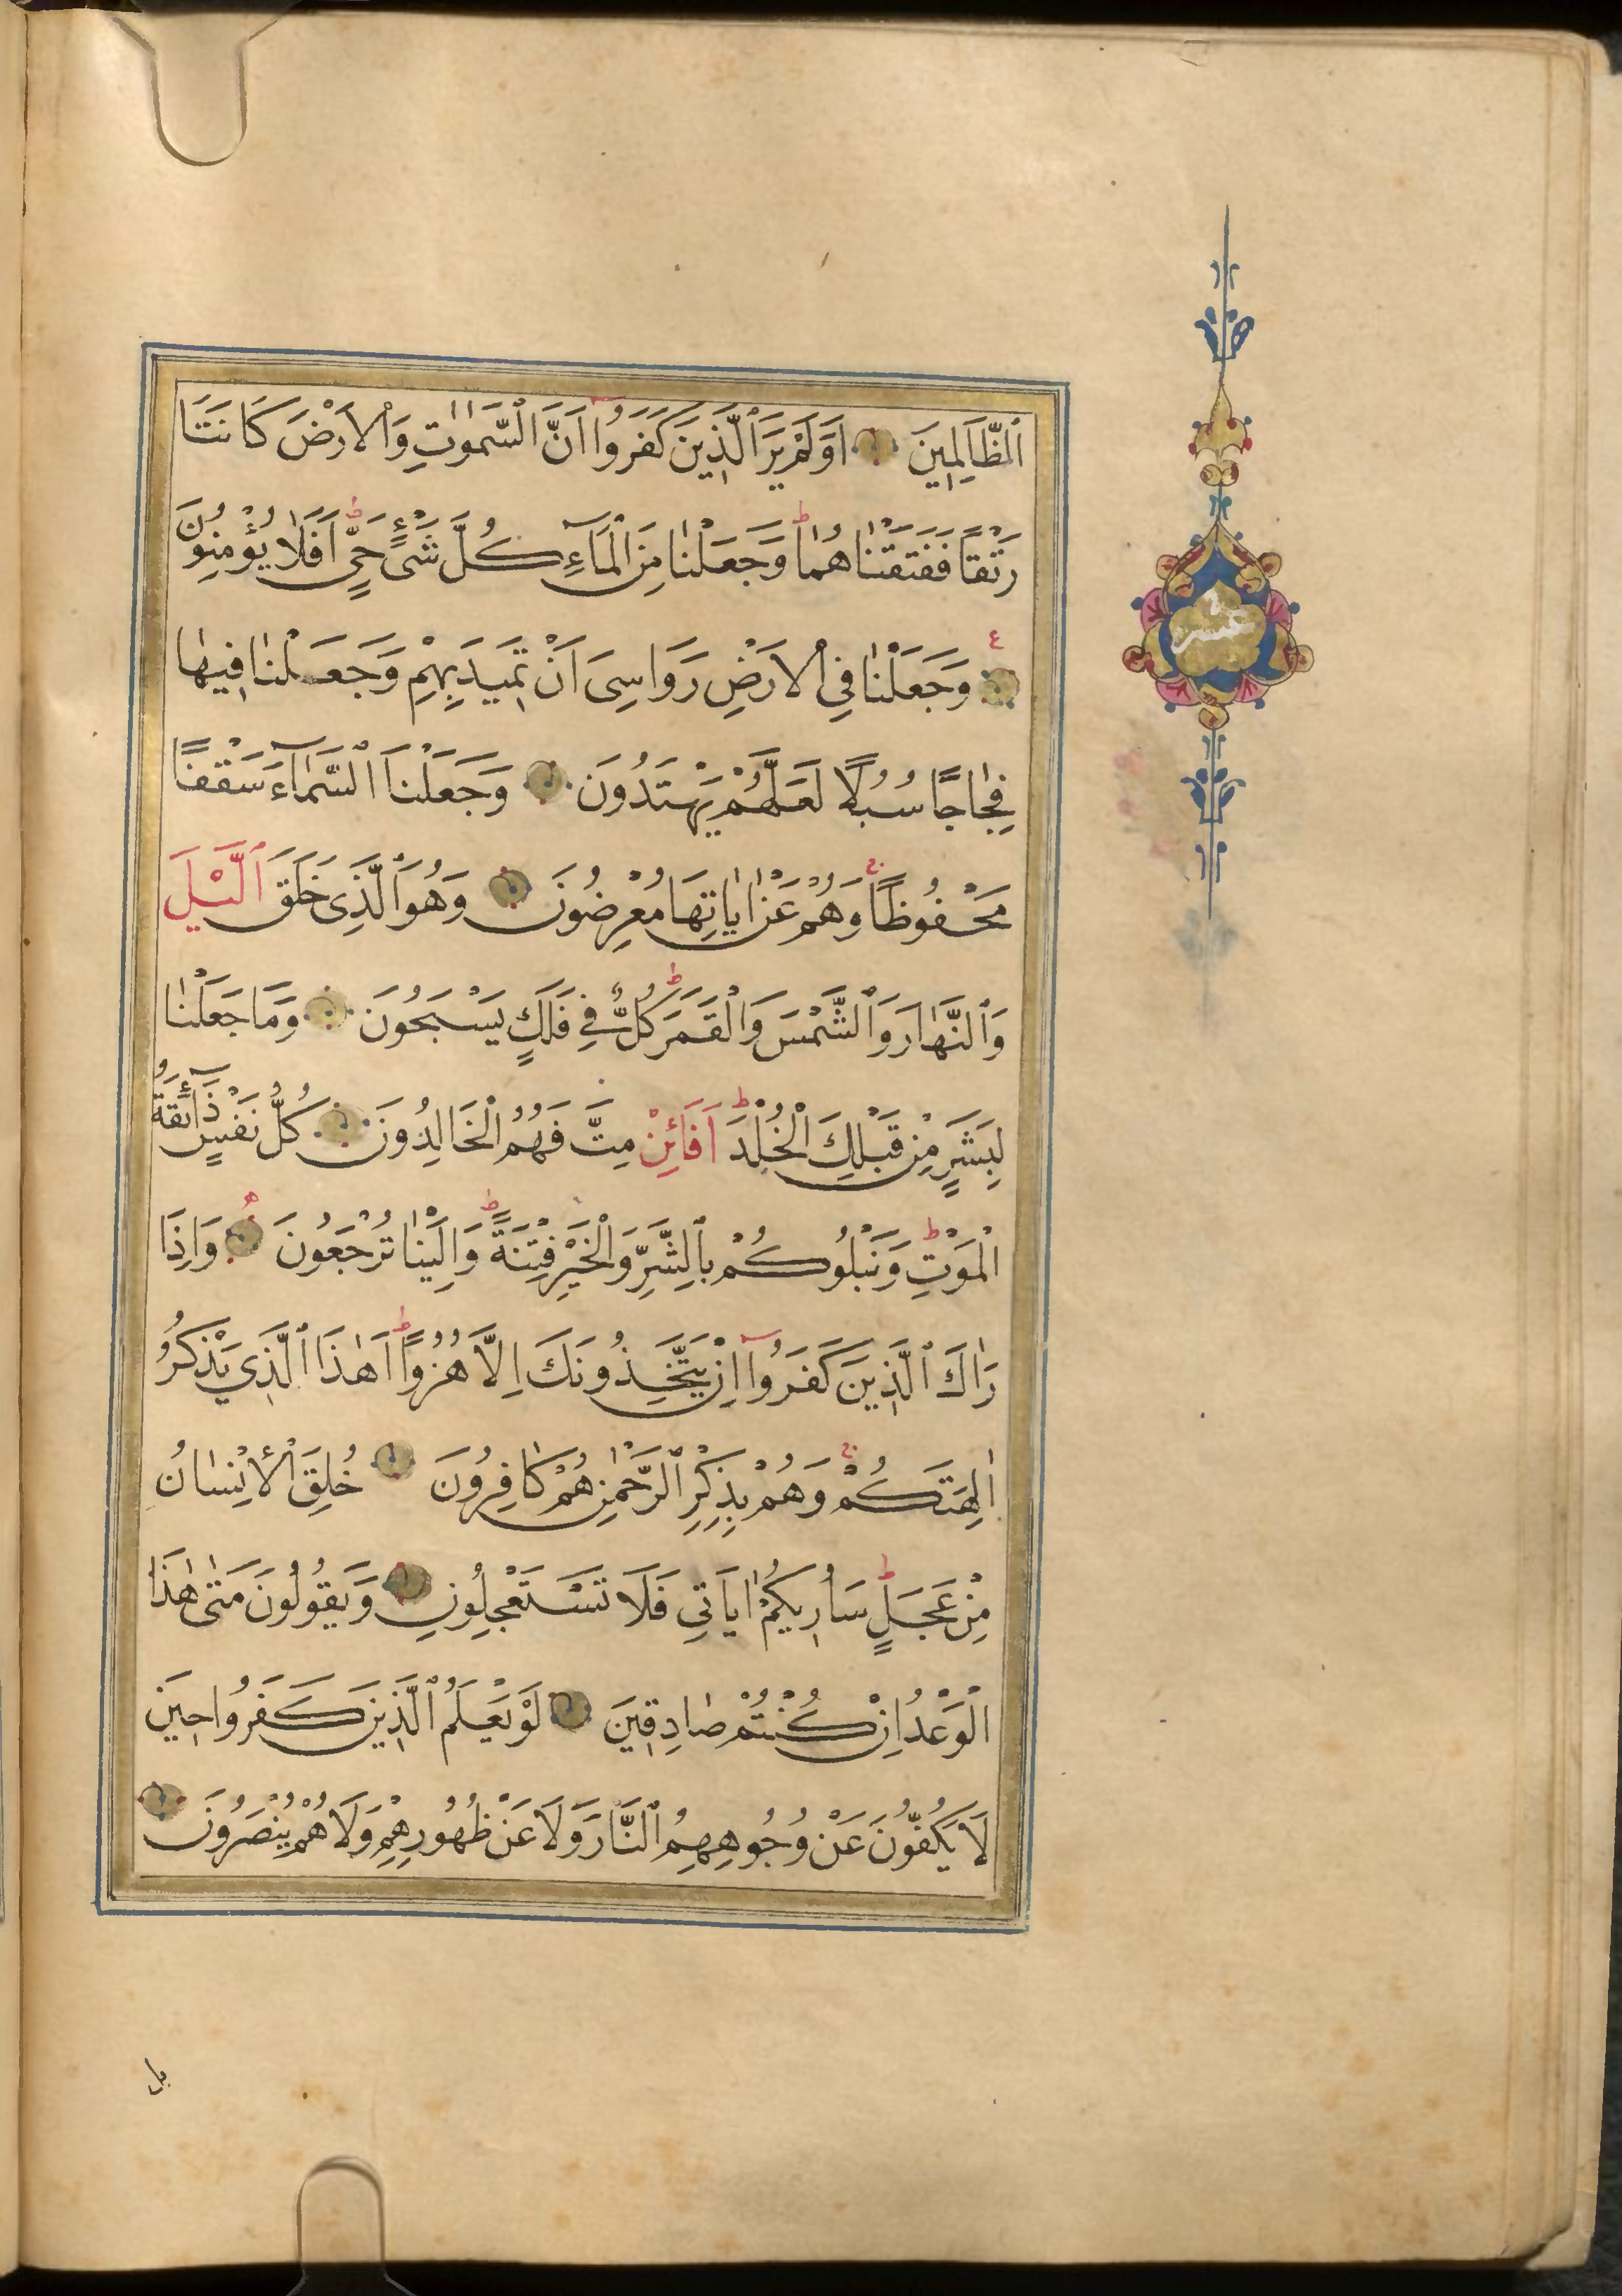 اَلظَّالِمِينَ اَوَلَمْ يَرَ الَّذِينَ كَفَرُوا اَنَّ السَّمٰوَاتِ وَالْاَرْضَ كَانَتَا
رَتْقًا فَفَتَقْنَاهُمَا ط وَجَعَلْنَا مِنَ الْمَآءِ كُلَّ شَىْءٍ حَيٍّ ط اَفَلَا يُؤْمِنُونَ
ع وَجَعَلْنَا فِي الْاَرْضِ رَوَاسِىَ اَنْ تَمِيدَ بِهِمْ وَجَعَلْنَا فِيهَا
فِجَاجًا سُبُلًا لَعَلَّهُمْ يَهْتَدُونَ وَجَعَلْنَا السَّمَآءَ سَقْفًا
مَحْفُوظًا ج وَهُمْ عَنْ اٰيَاتِهَا مُعْرِضُونَ وَهُوَ الَّذِى خَلَقَ الَّيْلَ
وَالنَّهَارَ وَالشَّمْسَ وَالْقَمَرَ ط كُلٌّ فِي فَلَكٍ يَسْبَحُونَ وَمَا جَعَلْنَا
لِبَشَرٍ مِنْ قَبْلِكَ الْخُلْدَ ط اَفَائِنْ مِتَّ فَهُمُ الْخَالِدُونَ كُلُّ نَفْسٍ ذَآئِقَةُ
الْمَوْتِ ط وَنَبْلُوكُمْ بِالشَّرِّ وَالْخَيْرِ فِتْنَةً ط وَاِلَيْنَا تُرْجَعُونَ وَاِذَا
رَاٰكَ الَّذِينَ كَفَرُوآ اِنْ يَتَّخِذُونَكَ اِلَّا هُزُوًا ط اَهٰذَا الَّذِي يَذْكُرُ
اٰلِهَتَكُمْ ج وَهُمْ بِذِكْرِ الرَّحْمٰنِ هُمْ كَافِرُونَ خُلِقَ الْاِنْسَانُ
مِنْ عَجَلٍ ط سَاُرِيكُمْ اٰيَاتِي فَلَا تَسْتَعْجِلُونِ وَيَقُولُونَ مَتٰى هٰذَا
الْوَعْدُ اِنْ كُنْتُمْ صَادِقِينَ لَوْ يَعْلَمُ الَّذِينَ كَفَرُوا حِينَ
لَا يَكُفُّونَ عَنْ وُجُوهِهِمُ النَّارَ وَلَا عَنْ ظُهُورِهِمْ وَلَا هُمْ يُنْصَرُونَ
بل
عشر